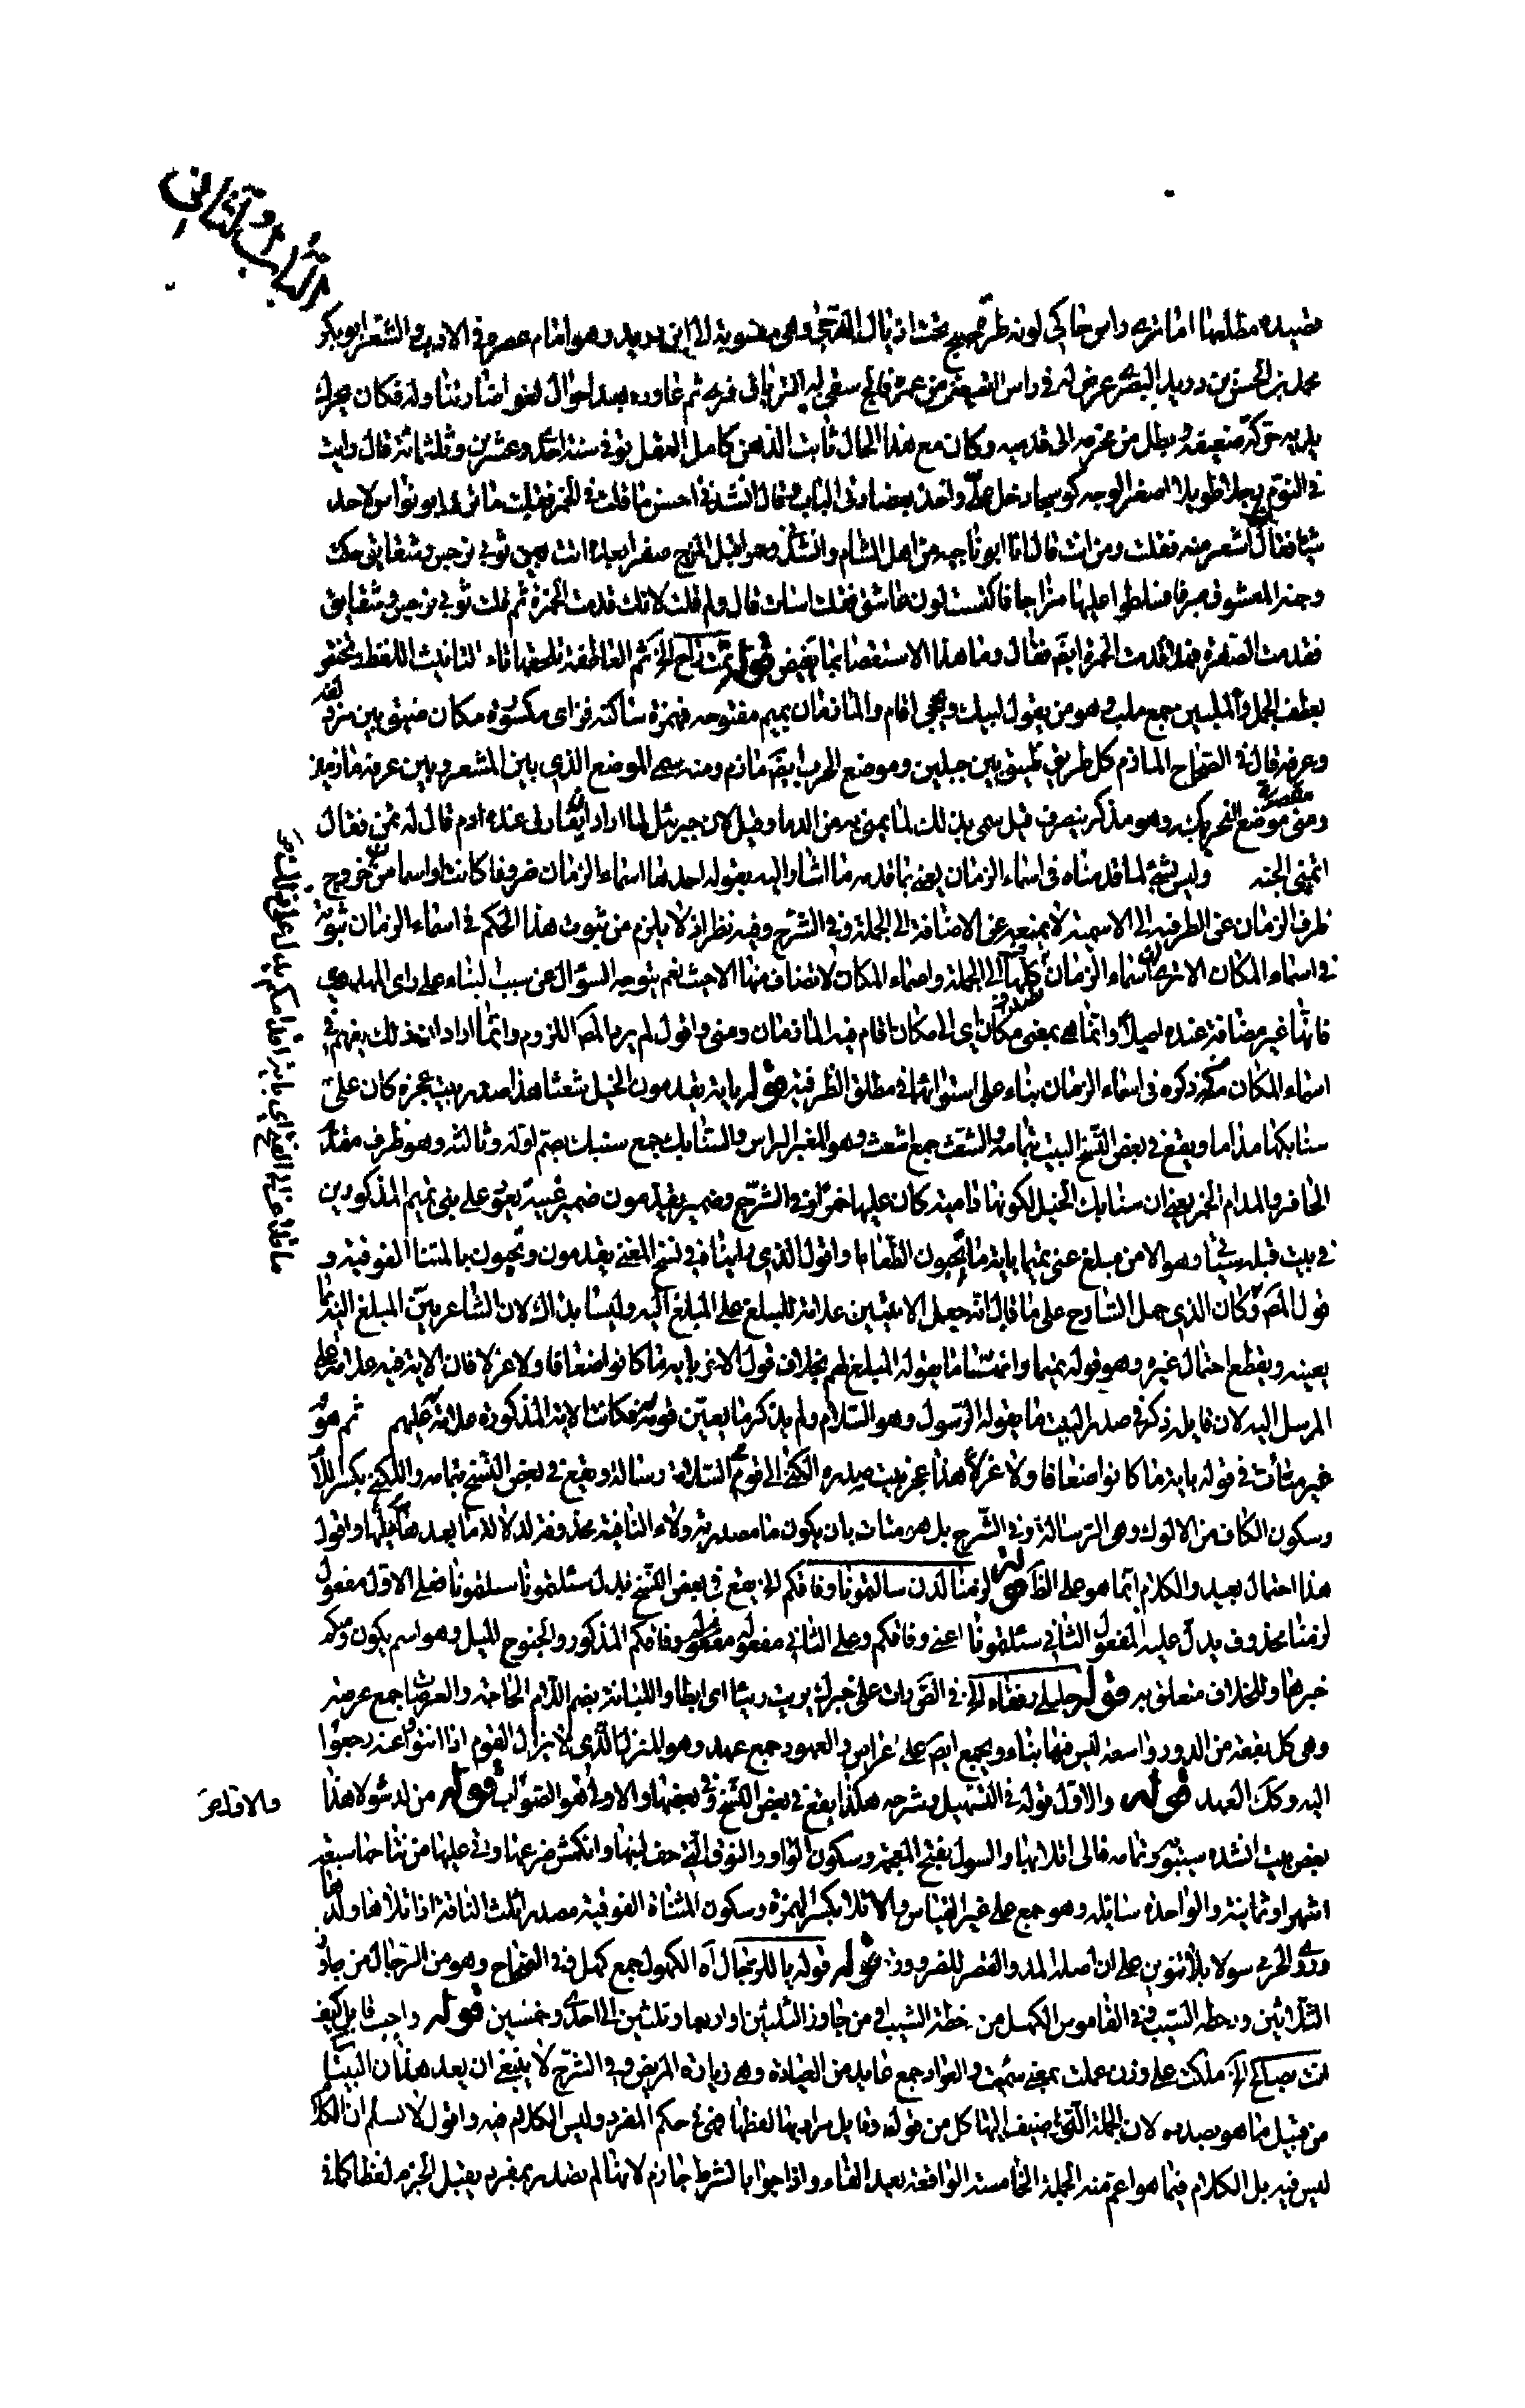 الباب الثاني
قصيده مطلعها اما تري راسي حاكي لونه طرة صبح تحت اذيال الدجي وهي منسوبة الي ابن دريد وهو امام عصره في الادب والشعر ابو بكر
محمد بن الحسن بن دريد البصري عرض له في راس التسعين من عمره فالج سقي له الترياق فبري ثم عاوده بعد احوال لغذا ضار تناوله فكان يحرك
يديه حركة ضعيفة وبطل من محزمه الي قدميه وكان مع هذا الحال ثابت الذهن كامل العقل توفي سنة احدي وعشرين وثلثمائة قال رايت
في النوم رجلا طويلا اصفر الوجه كوسجا دخل علي واخذ بعضادتي الباب وقال انشدني احسن ما قلت في الخمر فقلت ما ترك ابو نواس لاحد
شيئا فقال انا اشعر منه فقلت ومن انت قال انا ابو ناجيه من اهل الشام وانشدني وحمرا قبل المزج صفرا بعده اتت بين ثوبي نرجس وشقايق حكت
وجنة المعشوق صرفا فسلطوا عليها مزاجا فاكتست لون عاشق فقلت اسات قال ولم قلت لانك قدمت الحمرة ثم قلت ثوبي نرجس وشقايق
فقدمت الصفرة فهلا قدمت الحمرة ايضا فقال وما هذا الاستقصا يا بغيض قوله ثمت راح الخ ثم العاطفة تلحقها تاء التانيث اللفظ وتختص
بعطف الجمل والملبين جمع ملب وهو من يقول لبيك ويحجي اقام والمازمان بميم مفتوحه فهمزة ساكنة فزاي مكسورة مكان ضيق بين مزدلفه
وعرفه قال في الصحاح المازم كل طريق ضيق بين جبلين وموضع الحرب ايضا مازم ومنه سمي الموضع الذي بين المشعر وبين عرفة مازمين
ومني مقصورة موضع النحر بمكة وهو مذكر ينصرف قيل سمي بذلك لما يمني به من الدما وقيل لان جبرئيل لما اراد ان يفارق عنده ادم قال له تمن فقال
اتمني الجنه وليس بشئ لما قدمناه في اسماء الزمان يعني بما قدمه ما اشار اليه بقوله احدها اسماء الزمان ظروفا كانت او اسما من ان خروج
ظرف الزمان عن الظرفيه الي الاسمية لا يمنعه عن الاضافة الي الجملة وفي الشرح وفيه نظر اذ لا يلزم من ثبوت هذا الحكم في اسماء الزمان ثبوته
في اسماء المكان الا تري ان اسماء الزمان كلها الي الجملة واسماء المكان لا تضاف منها الا حيث نعم يتوجه السؤال عن سبب البناء علي راي المهدوي
فانها غير مضافة عنده اصلا وانما هي بمعني مكان اي الي مكان اقام فيه المازمان ومني واقول لم يرد المص اللزوم وانما اراد ان ذلك يفهم في
اسماء المكان من ذكره في اسماء الزمان بناء علي استوائهما في مطلق الظرفية قوله باية يقدمون الخيل شعثا هذا صدر بيت عجزه كان علي
سنابكها مداما ويقع في بعض النسخ البيت بتمامه والشعث جمع اشعث وهو المغبر الراس والسنابك جمع سنبك بضم اوله وثالثه وهو ظرف مقدم
الحافر والمدام الخمر يعني ان سنابك الخيل لكونها دامية كان عليها خمرا وفي الشرح وضمير يقدمون ضمير غيبة يعود علي بني تميم المذكورين
في بيت قبله بيتا وهو الا من مبلغ عني تميما باية ما يحبون الطعاما واقول الذي رايناه في نسخ المغني يقدمون وتحبون بالمثناة الفوقية و
قول المص وكان الذي حمل الشارح علي ما قال انه جعل الايتين علامة للمبلغ علي المبلغ اليه وليسا بذاك لان الشاعر بين المبلغ اليه
بعينه ويقطع احتمال غيره وهو قوله تميما وانما بينا ما يقوله المبلغ لهم بخلاف قول الاخر باية ما كانوا ضعافا ولا عزلا فان الاية فيه علامة علي
المرسل اليه لان قايل ذكر في صدر البيت ما يقوله الرسول وهو السلام ولم يذكر ما يعين قومه فكانت الاية المذكوره علامة عليهم ثم هو
غير متات في قوله باية ما كانوا ضعافا ولا عزلا هذا عجز بيت صدره الكني الي قومي السلام رسالة ويقع في بعض النسخ بتمامه والكني بكسر اللام
وسكون الكاف من الالوك وهي الرسالة وفي الشرح بل هو متات بان يكون ما مصدرية ولاء النافية محذوفة لدلالة ما بعدها عليها واقول
هذا احتمال بعيد والكلام انما هو علي الظاهر قوله لزمنا لدن سالمتمونا وفاقكم الخ يقع في بعض النسخ بدل سئلتمونا سالمتمونا فعلي الاول مفعول
لزمنا محذوف يدل عليه المفعول الثاني سئلتمونا اعني وفاقكم وعلي الثاني مفعوله وفاقكم المذكور والجنوح الميل وهو اسم يكون ومنكم
خبرها وللخلاف متعلق به قوله خليلي رفقا الخ في الضرورات علي خبر ان يريث ريثا اي ابطا واللبانة بضم اللام الحاجة والعرصات جمع عرصة
وهي كل بقعة من الدور واسعة ليس فيها بناء ويجمع ايضا علي عراص والعهود جمع عهد وهو المنزل الذي لا يزال القوم اذا انتووا عنه رجعوا
اليه وكك العهد قوله والاول قوله في التسهيل وشرحه هكذا يقع في بعض النسخ وفي بعضها والاولي هو الصواب قوله من لد شولا هذا
بعض بيت انشده سيبويه وتمامه فالي اتلائها والشول بفتح المعجمة وسكون الواو والنوق التي خف لبنها وانكمش ضرعها واتي عليها من نتاجها سبعة
اشهر او ثمانية والواحدة شائلة وهو جمع علي غير القياس والاتلا بكسر الهمزة وسكون المثناة الفوقية مصدر اتلت الناقة اذا تلاها ولدها
وروي الجرمي شولا بلا تنوين علي ان اصله المد والقصر للضرورة قوله قوله يا للرجال اه الكهول جمع كهل في الصحاح وهو من الرجال من جاوز
الثلاثين ووخطه الشيب وفي القاموس الكهل من خطه الشيب او من جاوز الثلثين او اربعا وثلثين الي احدي وخمسين قوله واجبت قايل كيف
انت بصالح الخ ملكت علي وزن عملت بمعني سئمت والعواد جمع عايد من العيادة وهي زيارة المريض وفي الشرح لا ينبغي ان يعد هذان البيتان
من قبيل ما هو بصدده لان الجملة التي اضيف اليها كل من قوله وقايل مراد بها لفظها فهي في حكم المفرد وليس الكلام فيه واقول لا نسلم ان الكلام
ليس فيه بل الكلام فيما هو اعم منه الجملة الخامسة الواقعة بعد الفاء واذا جوابا لشرط جازم لانها لم يصدر بمفرد يقبل الجزم لفظا كما في